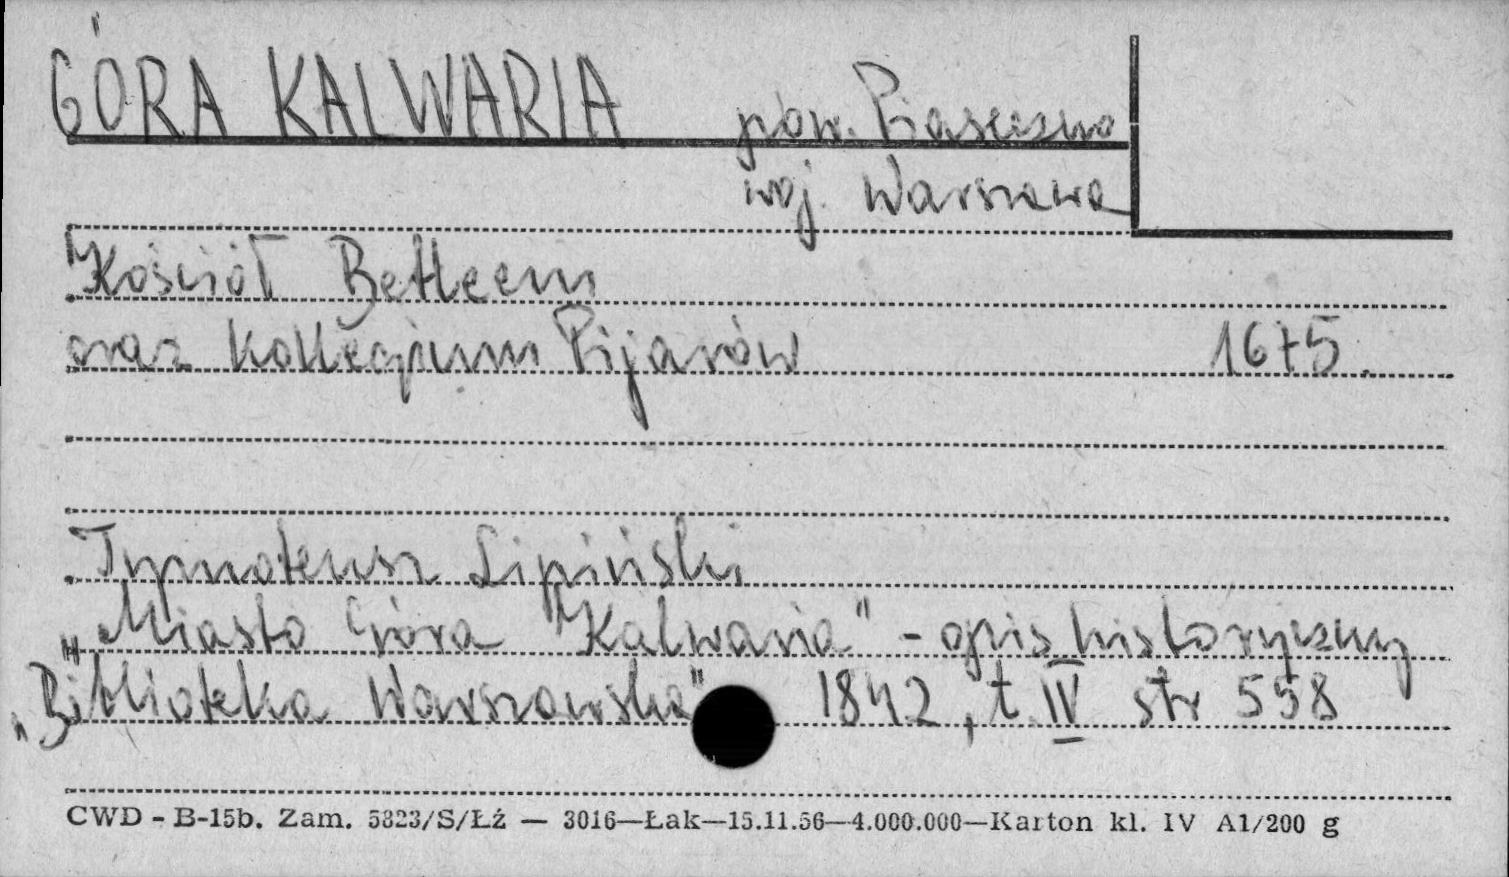 GÓRA KALWARIA pow. Piaseczno
woj. Warszawa
Kościół Betleem
oraz Kollegium Pijarów 1675.
Tymoteusz Lipiński
„Miasto Góra Kalwaria" - opis historyczny
„Biblioteka Warszawska" 1842, t. IV str 558
CWD - B-15b. Zam. 5323/S/Łź — 3016—Łak—15.11.56—4.000.000—Karton kl. IV A1/200 g